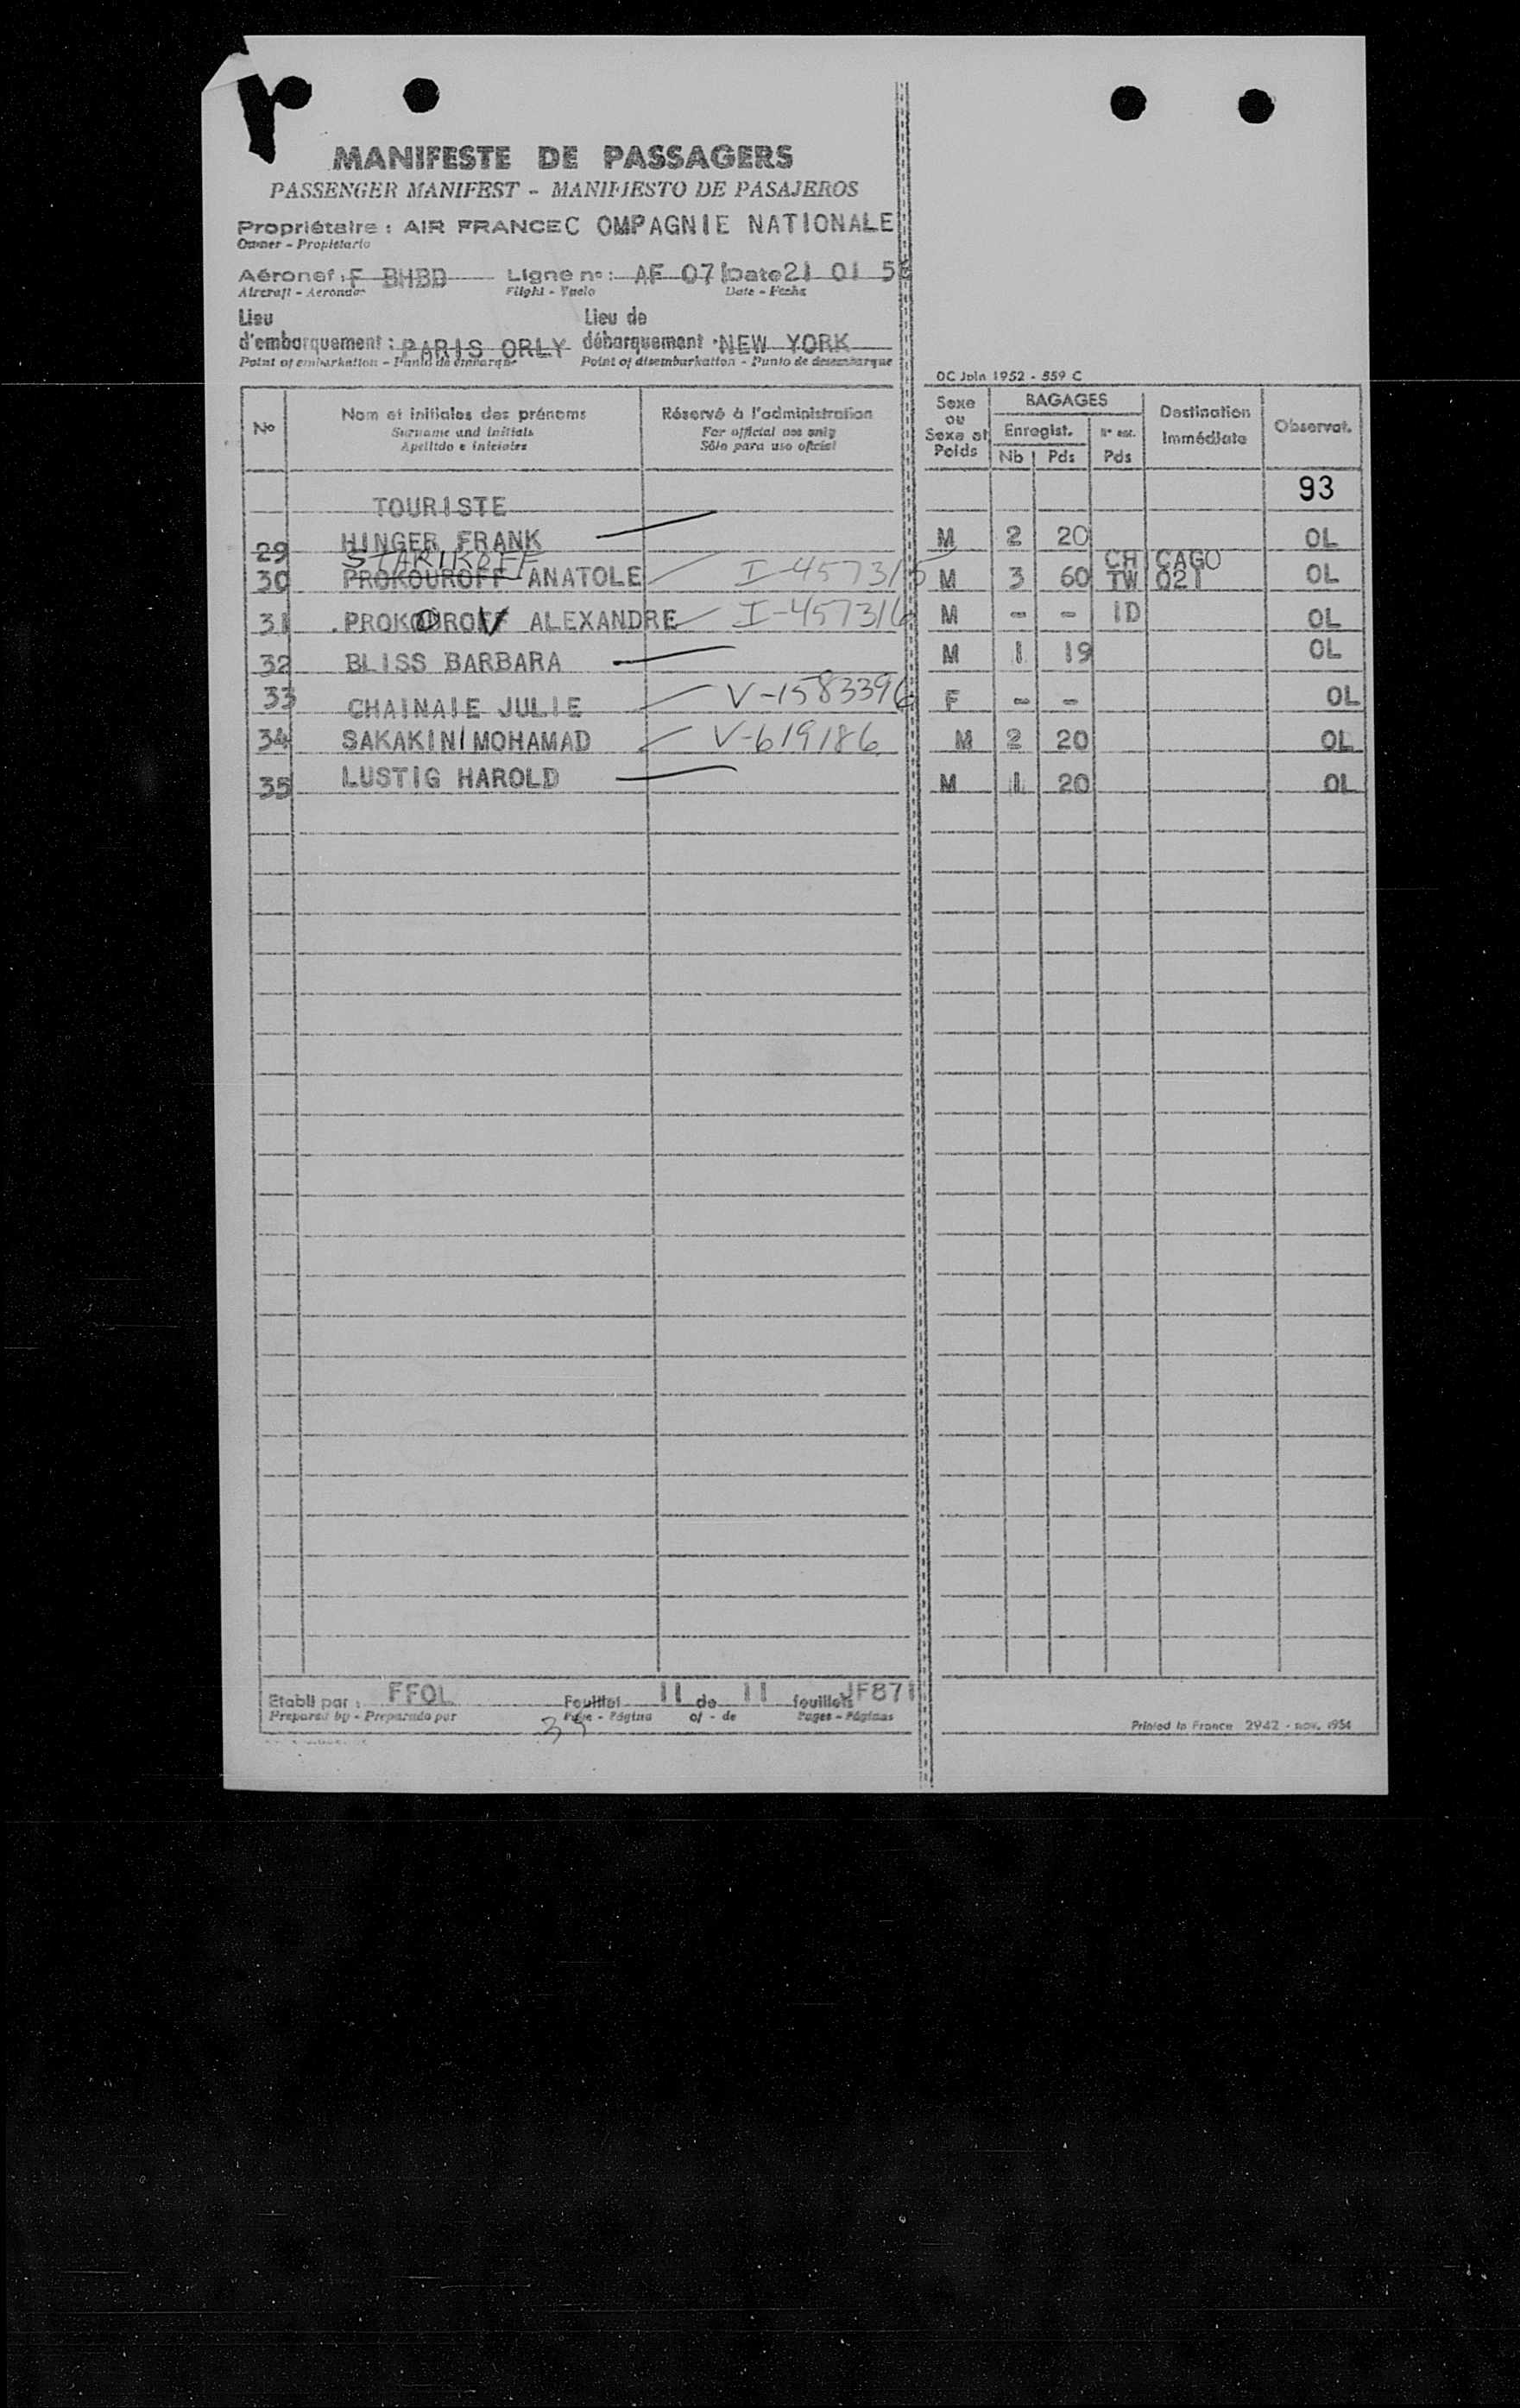 MANIFESTE DE PASSAGERS
PASSENGER MANIFEST - MANIFIESTO DE PASAJEROS
Propriétaire : AIR FRANCE C OMPAGNIE NATIONALE
Owner - Propietario
Aéronef : F BHBD Ligne n° : AF 07 Date 21 01 5
Aircraft - Aeronave Flight - Vuelo Date - Fecha
Lieu d'embarquement : PARIS ORLY Lieu de débarquement : NEW YORK
Point of embarkation - Punto de embarque Point of disembarkation - Punto de desembarque
OC Join 1952 - 559 C
N° Nom et initiales des prénoms Réservé à l'administration Sexe ou Sexe et Poids BAGAGES Destination Immédiate Observat.
Surname and initials For official use only Enregist. N° enr.
Apellido e iniciales Sólo para uso oficial Nb Pds Pds
TOURISTE 93
29 HINGER FRANK M 2 20 OL
STARIKOFF CH CAGO
30 PROKOUROFF ANATOLE I-457315 M 3 60 TW 021 OL
31 PROKOROV ALEXANDRE I-457316 M - - ID OL
32 BLISS BARBARA M 1 19 OL
33 CHAINAIE JULIE V-1583396 F - - OL
34 SAKAKINI MOHAMAD V-619186 M 2 20 OL
35 LUSTIG HAROLD M 1 20 OL
Etabli par : FFOL Feuillet 11 de 11 feuillets JF871
Prepared by - Preparado por Page - Página of - de Pages - Páginas
Printed in France 2942 - nov. 1954